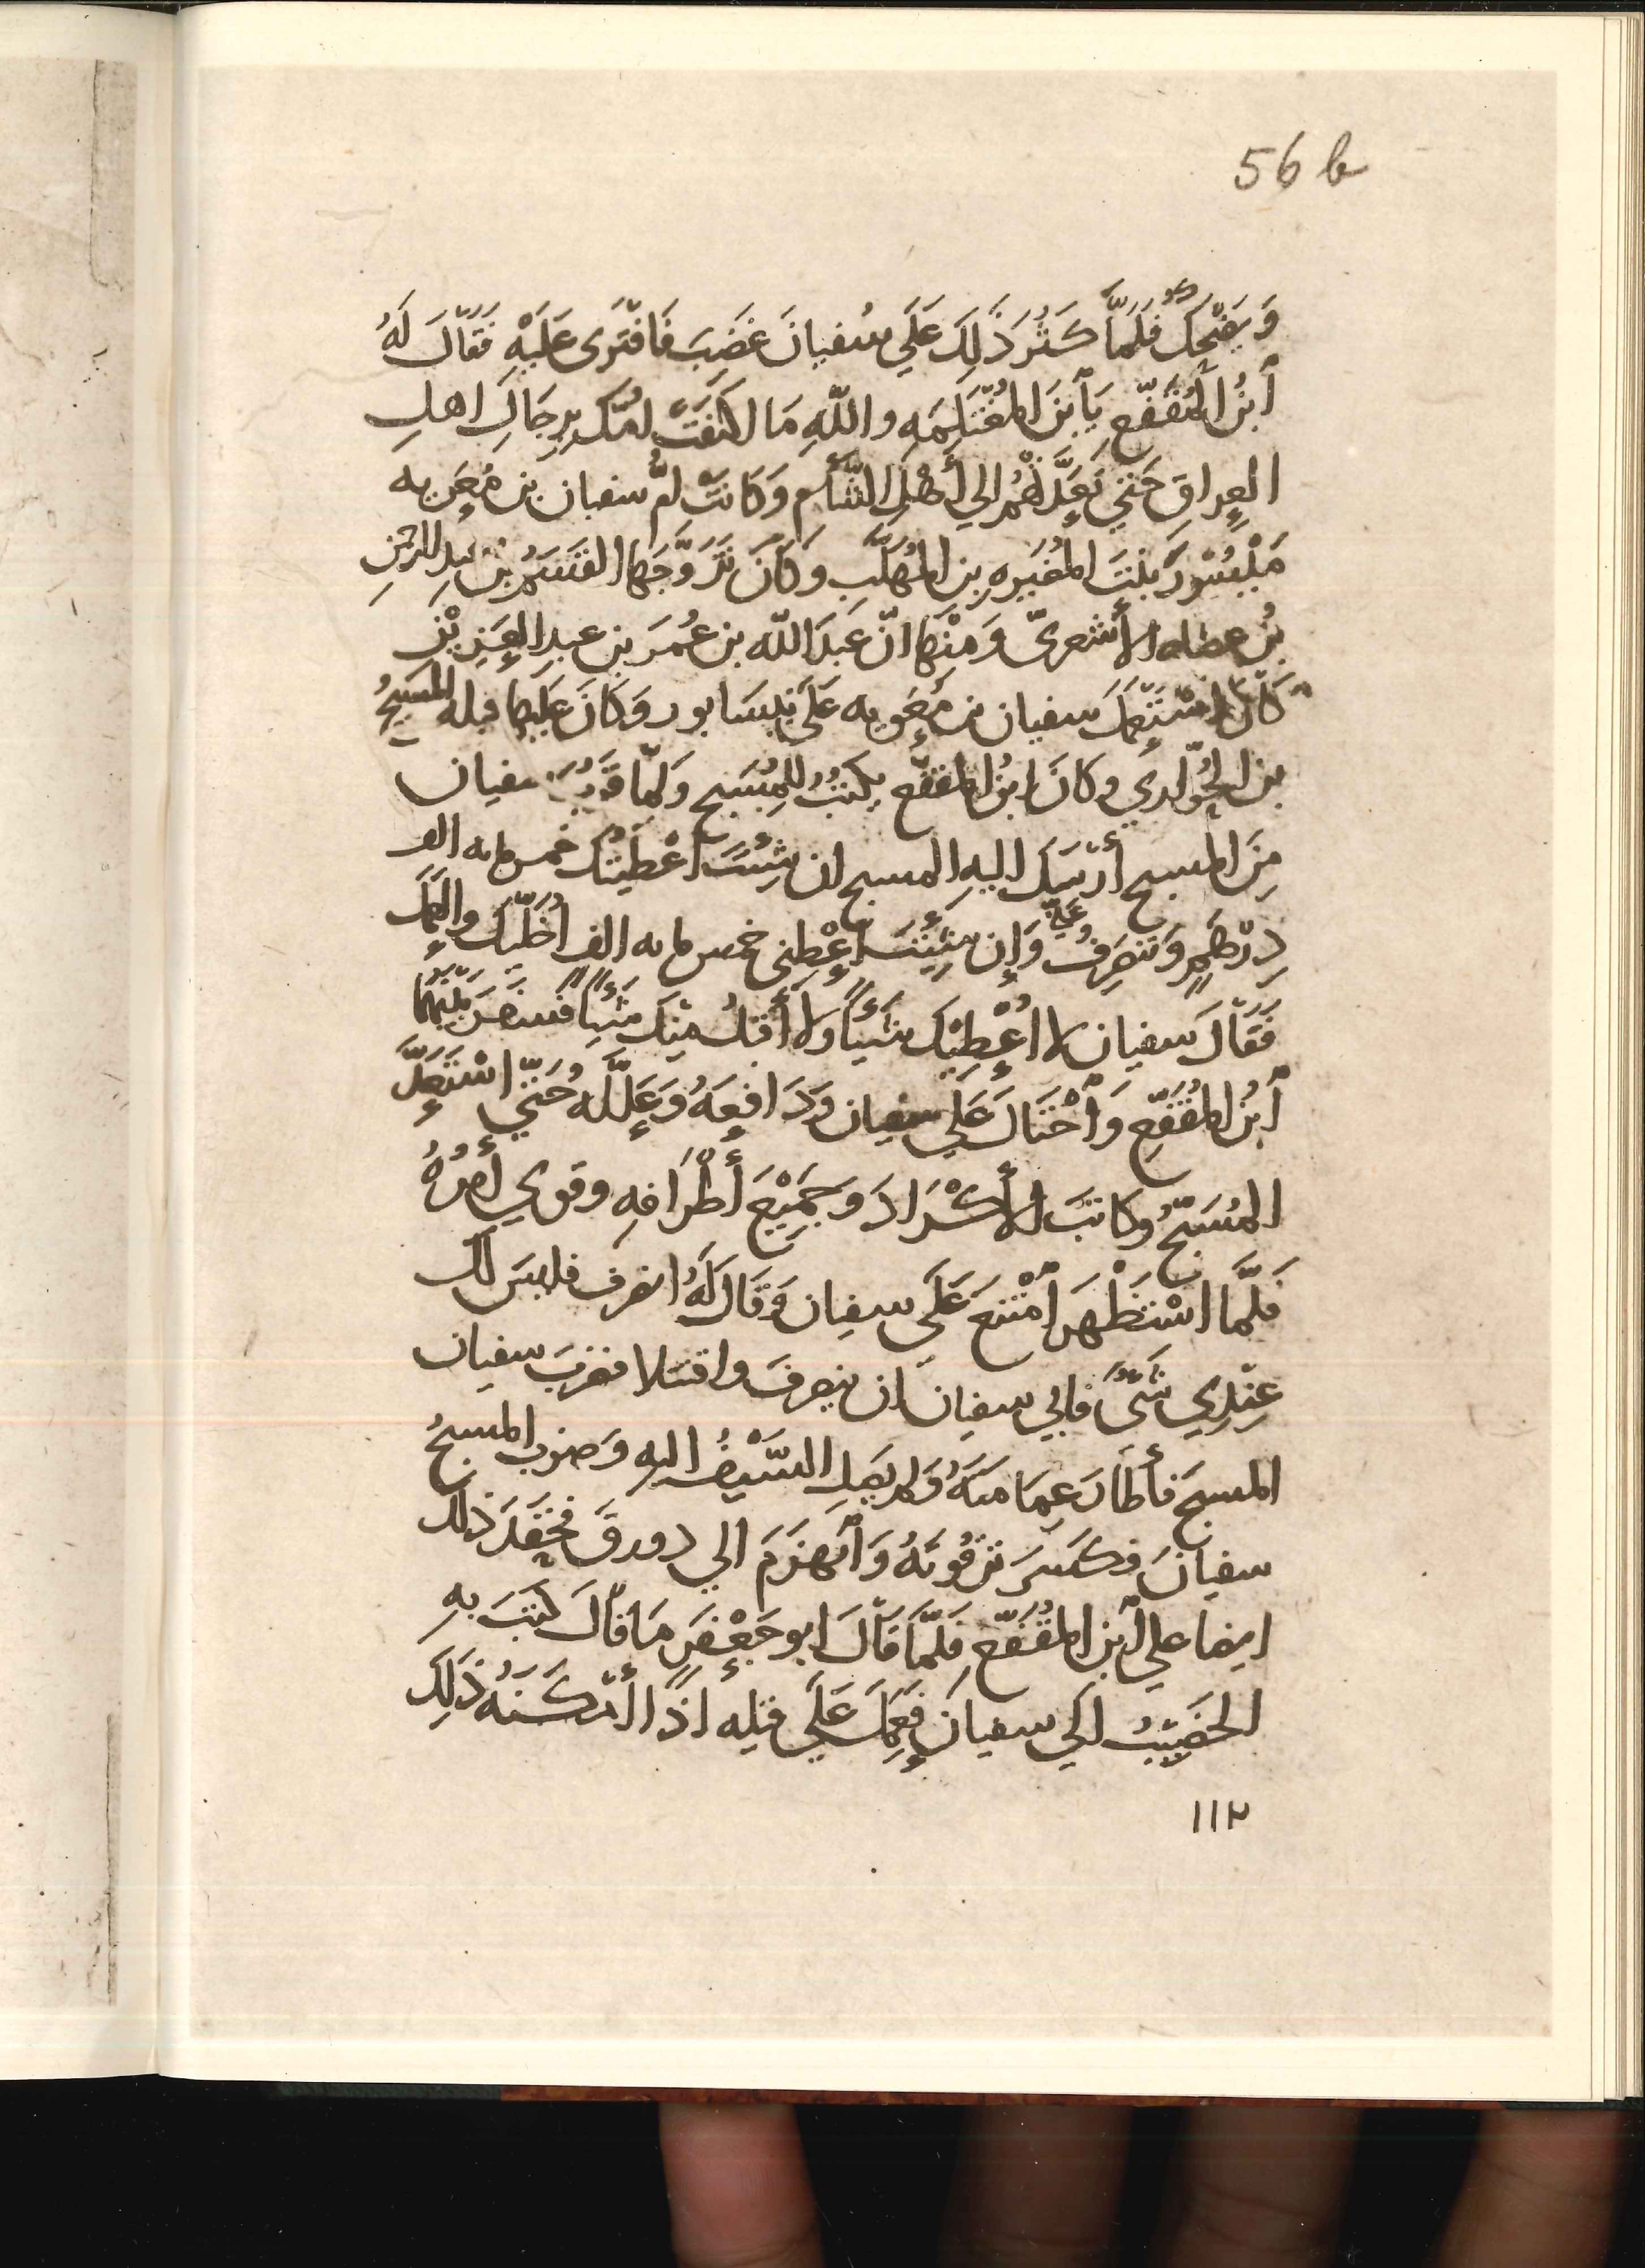 56 b
وَيَضْحَكُ فَلَمَّا كَثُرَ ذَلِكَ عَلَي سُفيانَ غَضِبَ فَافْتَرَى عَلَيْهِ فَقَالَ لَهُ
ٱبنُ المُقَفَّعِ يَابْنَ المُغْتَلِمَهِ واللّهِ مَا اكتفَتْ امُّك بِرِجَالِ اهلِ
العِراقِ حَتي تَعَدَّتْهُم الي أَهْلِ الشَّأمِ وَكَانَتْ امُّ سفيان بن مُعَويه
مَيْسُورَ بنتَ المُغيَرهِ بن المُهَلَّبِ وَكَانَ تَزَوَّجَها القسَمُ بن عبدِ الرحمنِ
بنُ عضاه الأشعريّ وَمِنْهَا انّ عَبدَ اللّه بن عُمَرَ بنِ عبدِ العَزِيْزِ
كَانَ اسْتَعْمَلَ سفيان بن مُعَويه عَلَي نيسَابور وَكَانَ عَلَيها قبله المسَبِحُ
بن الحُوّاري وكانَ ابنُ المقفّع يكتُبُ لِلمُسَبِح وَلمّا قَرُبَ سفيان
مِنَ المسبح أرْسَلَ اليهِ المسبح ان شِئتَ أعْطَيْتُك خمس مايه الف
دِرْهَمٍ وَتنصَرِفُ عَنّي وَإن شِئْتَ أَعْطِني خمس مايه الف أُخَلّيك والعَمَل
فَقَالَ سفيان لا أُعْطِيْك شَيْئًا وَلا أقبلُ مِنْك شَيْئًا فسَفَرَ بَيْنَهُما
ٱبنُ المُقَفّعِ وَٱحْتَالَ عَلَي سفيان وَدَافَعَهُ وَعَلَّله حَتّي اسْتَعَدَّ
المُسَبّحُ وكاتبَ الأكْرَادَ وجَمِيْعَ أَطْرَافِهِ وقوي أَمرُهُ
فَلَمَّا اسْتَظْهَرَ ٱمْتَنَعَ عَلَي سفيان وَقَالَ لَهُ انصرف فليسَ لَك
عِنْدِي شَيٌ فَابي سفيان ان ينصرفَ واقتتلا فضَربَ سفيان
المسبحَ فأطَارَ عِمَامتَهُ وَلم يَصِلِ السَّيْفُ اليه وَضرب المسبحُ
سفيانَ فكَسَرَ تَرقُوتَهُ وَٱنهَزَمَ الي دورق فحَقَدَ ذلك
ايضا علي ٱبن المُقَفّعِ فَلمّا قَالَ ابو جَعْفَرٍ مَا قالَ كتبَ بهِ
الخَصِيْبُ الَي سفيانَ فعَمِلَ عَلَي قتلِه اذَا أمْكَنَهُ ذَلِكَ
١١٢